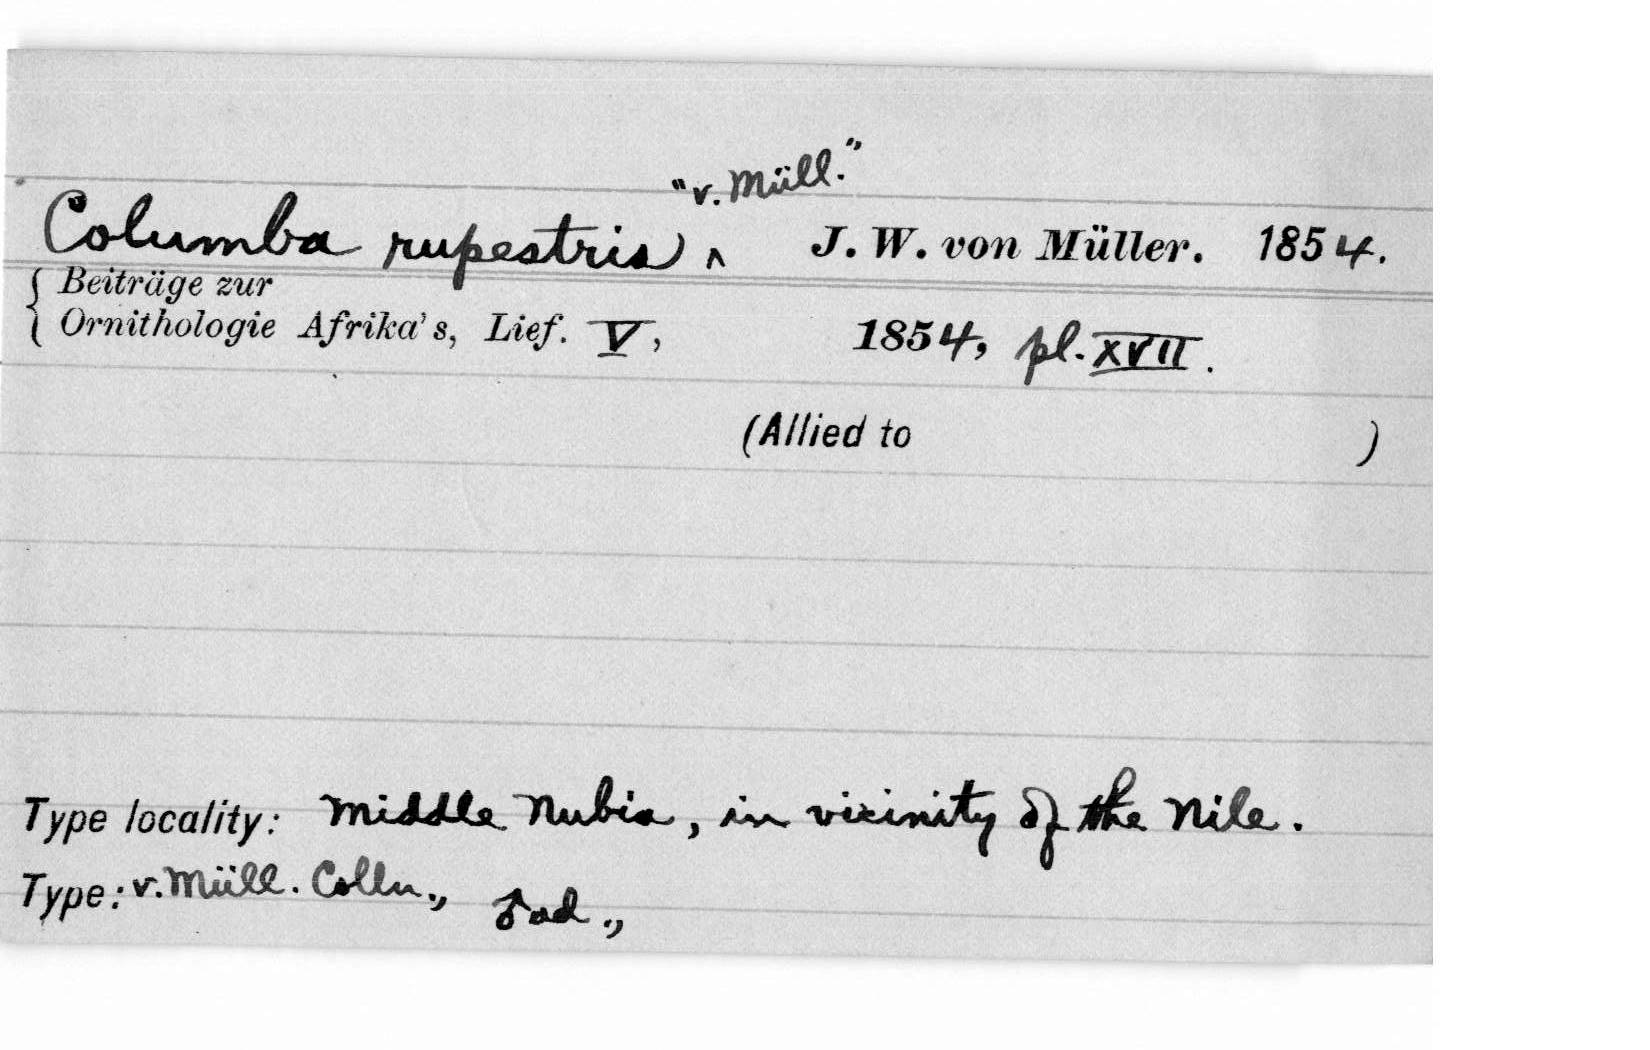 "v. Müll."
Columba rupestris ^ J. W. von Müller. 1854.
{ Beiträge zur
Ornithologie Afrika's, Lief. V, 1854, pl. XVII.
(Allied to )
Type locality: Middle Nubia, in vicinity of the Nile.
Type: v. Müll. Colln., ♂ ad.,